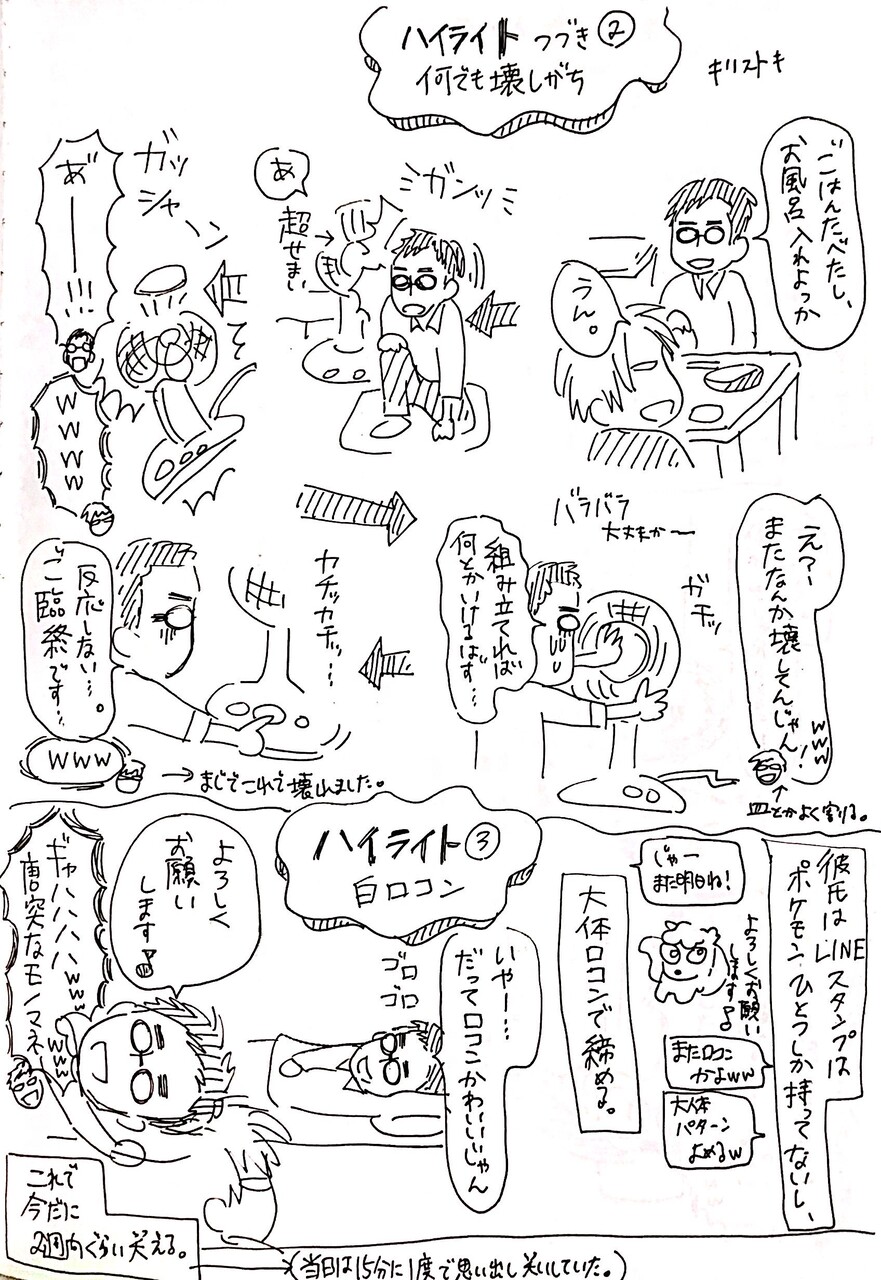 ハイライト つづき②
何でも壊しがち
キリストキ
ごはんたべたし、
お風呂入れよっか
うん。
ガンッ
あ
超せまい
ガッ
シャーン
あ゛ーーー!!!
wwww
え?ー
またなんか壊してんじゃん!
www
皿とかよく割る。
バラバラ
大丈夫かー
組み立てれば
何とかいけるはず…
ガチッ
カチッカチッ…
反応しない…。
ご臨終です…
www
→まじでこれで壊れました。
ハイライト③
白ロコン
彼氏はLINEスタンプは
ポケモンひとつしか持ってないし、
じゃー
また明日ね!
よろしくお願い
します♪
またロコン
かよww
大体
パターン
よめるw
大体ロコンで締める。
いやー…
だってロコンかわいいじゃん
ゴロゴロ
よろしく
お願い
します♪
ギャハハハハwww
唐突なモノマネwww
これで
今だに
2週間ぐらい笑える。
(当日は15分に1度で思い出し笑いしていた。)